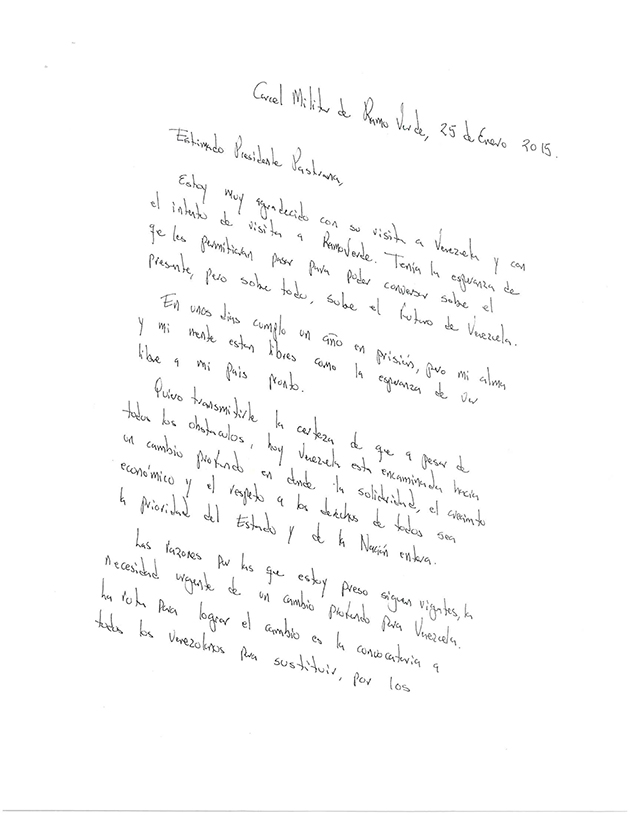 Carcel Militar de Ramo Verde, 25 de Enero 2015.
Estimado Presidente Pastrana,
Estoy muy agradecido con su visita a Venezuela y con
el intento de visita a Ramo Verde. Tenía la esperanza de
qe les permitieran pasar para poder conversar sobre el
presente, pero sobre todo, sobre el futuro de Venezuela.
En unos días cumplo un año en prisión, pero mi alma
y mi mente estan libres como la esperanza de ver
libre a mi pais pronto.
Quiero transmitirle la certeza de que a pesar de
todos los obstaculos, hoy Venezuela esta encaminada hacia
un cambio profundo en donde la solidaridad, el
económico y el respeto a los derechos de todos sea
la prioridad del Estado y de la Nación entera.
Las razones por las que estoy preso siguen vigentes, la
necesidad urgente de un cambio profundo para Venezuela.
ruta para lograr el cambio es la convocatoria a
todos los venezolanos para sustituir, por los